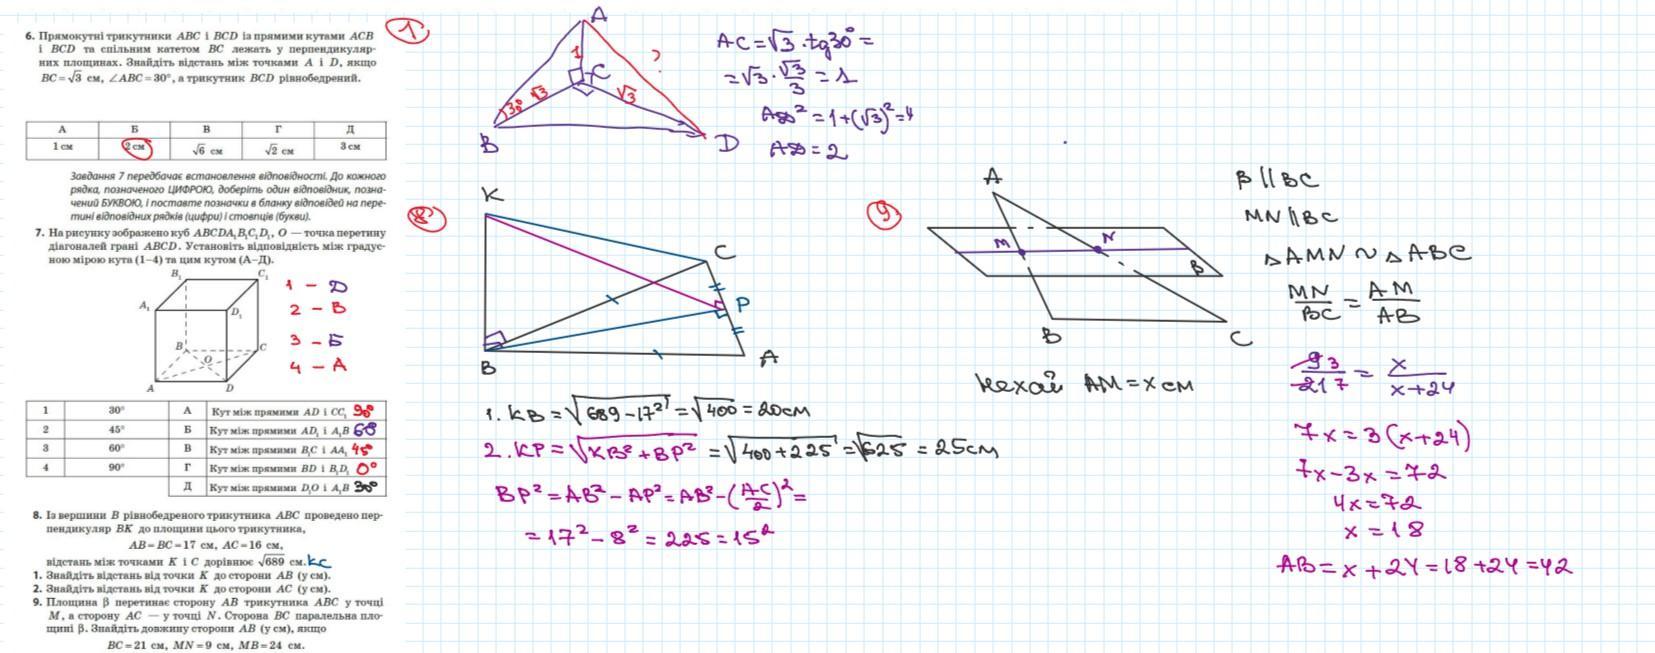 6. Прямокутні трикутники ABC і BCD із прямими кутами ACB
і BCD та спільним катетом BC лежать у перпендикуляр-
них площинах. Знайдіть відстань між точками A і D, якщо
BC = √3 см, ∠ABC = 30°, а трикутник BCD рівнобедрений.
А Б В Г Д
1 см 2 см √6 см √2 см 3 см
Завдання 7 передбачає встановлення відповідності. До кожного
рядка, позначеного ЦИФРОЮ, доберіть один відповідник, позна-
чений БУКВОЮ, і поставте позначки в бланку відповідей на пере-
тині відповідних рядків (цифри) і стовпців (букви).
7. На рисунку зображено куб ABCDA₁B₁C₁D₁, O — точка перетину
діагоналей грані ABCD. Установіть відповідність між градус-
ною мірою кута (1–4) та цим кутом (А–Д).
B₁ C₁
A₁ D₁
B C
O
A D
1 – Д
2 – В
3 – Б
4 – А
1 30° А Кут між прямими AD і CC₁ 90°
2 45° Б Кут між прямими AD₁ і A₁B 60°
3 60° В Кут між прямими B₁C і AA₁ 45°
4 90° Г Кут між прямими BD і B₁D₁ 0°
Д Кут між прямими D₁O і A₁B 30°
8. Із вершини B рівнобедреного трикутника ABC проведено пер-
пендикуляр BK до площини цього трикутника,
AB = BC = 17 см, AC = 16 см,
відстань між точками K і C дорівнює √689 см. KC
1. Знайдіть відстань від точки K до сторони AB (у см).
2. Знайдіть відстань від точки K до сторони AC (у см).
9. Площина β перетинає сторону AB трикутника ABC у точці
M, а сторону AC — у точці N. Сторона BC паралельна пло-
щині β. Знайдіть довжину сторони AB (у см), якщо
BC = 21 см, MN = 9 см, MB = 24 см.
1.
A
1 ?
C
30° √3 √3
B D
AC = √3 · tg30° =
= √3 · √3/3 = 1
AD² = 1 + (√3)² = 4
AD = 2
8.
K
C
P
B A
1. KB = √(689 – 17²) = √400 = 20 см
2. KP = √(KB² + BP²) = √(400 + 225) = √625 = 25 см
BP² = AB² – AP² = AB² – (AC/2)² =
= 17² – 8² = 225 = 15²
9.
A
M N
β
B C
Нехай AM = x см
β || BC
MN || BC
△AMN ~ △ABC
MN/BC = AM/AB
9 3/21 7 = x/x + 24
7x = 3(x + 24)
7x – 3x = 72
4x = 72
x = 18
AB = x + 24 = 18 + 24 = 42